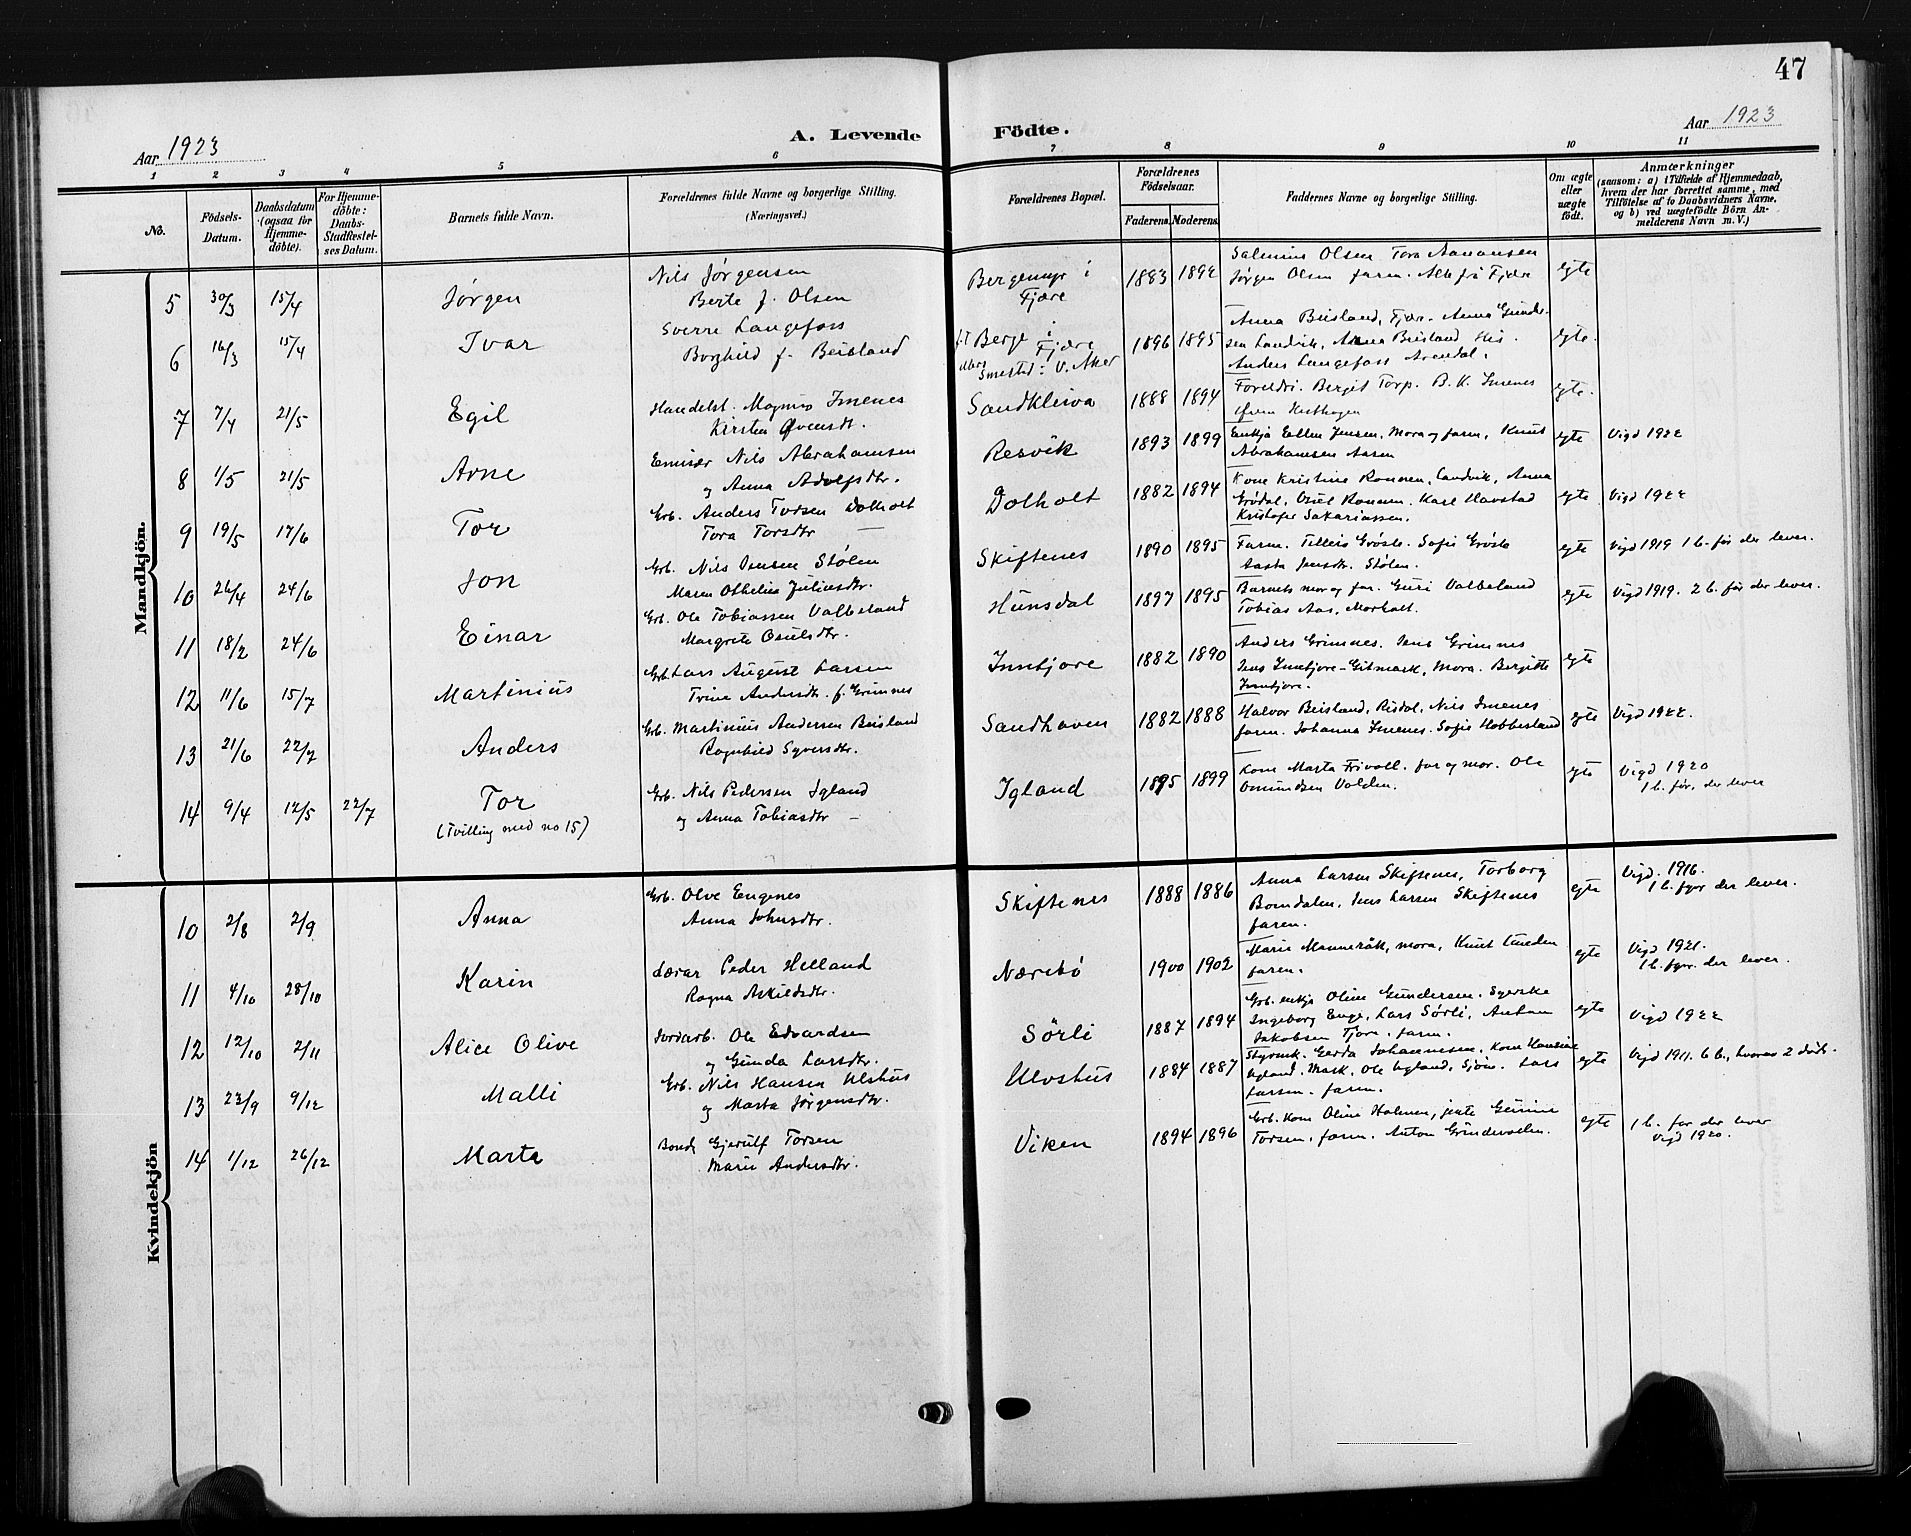 47
Aar 1923
A. Levende Födte.
Aar 1923
1 2 3 4 5 6 7 8 9 10 11
No.
Födsels-Datum.
Daabsdatum (ogsaa for Hjemme-döbte).
For Hjemme-döbte: Daabs-Stadfæstel-ses Datum.
Barnets fulde Navn.
Forældrenes fulde Navne og borgerlige Stilling. (Næringsvei.)
Forældrenes Bopæl.
Forældrenes Födselsaar.
Faderens. Moderens.
Faddernes Navne og borgerlige Stilling.
Om ægte eller uægte födt.
Anmærkninger
(saasom: a) i Tilfælde af Hjemmedaab, hvem der har forrettet samme, med Tilföielse af to Daabsvidners Navne, og b) ved uægtefödte Börn Anmelderens Navn m. V.)
Mandkjön.
5 30/3 15/4 Jørgen
Nils Jørgensen
Berte f. Olsen
Bergemyr i
Fjære
1883 1892
Olsen Tora
Jørgen Olsen farm. Alle frå Fjære
egte
6 16/3 15/4 Ivar
Sverre Langefoss
Borghild f. Beisland
Berge i
Fjære
Smestad i V. Aker
1896 1895
Anna Beisland, Fjære. Anna Gunder-
sen Landvik, Anna Beisland His.
Anders Langefoss Arendal.
egte.
7 7/4 21/5 Egil
Handelsb. Magnus Imenes
Kirsten Øvensdt.
Sandkleiva
1888 1894
Foreldri. Bergit Torp. B. K. Imenes
egte.
8 1/5 21/5 Arne
Emisær Nils Abrahamsen
og Anna Adolfsdtr.
Resvik
1893 1899
Enkja Ellen Jensen, Mora og farm, Knut
Abrahamsen Aasen
egte Vigd 1922
9 19/5 17/6 Tor
Grb. Anders Torsen Dolholt
Tora Torsdtr
Dolholt
1882 1894
Kone Kristine Ronnen, Landvik, Anna
Grødal, Ronnen. Karl Havstad
Kristofer Sakariassen.
egte Vigd 1922
10 26/4 24/6 Jon
Grb. Nils Jensen Stølen
Maren Othelie Juliusdtr.
Skiftenes
1890 1895
Farm. Tilleis Grøsle. Sofie Grøsle
Aasta Jensdt. Stølen.
egte Vigd 1919 1 b. før der lever.
11 18/2 24/6 Einar
Grb. Ole Tobiassen Valbeland
Margrete Osulsdtr.
Hunsdal
1897 1895
Barnets mor og far. Guri Valbeland
Tobias Aas, Morholt.
egte Vigd 1919. 2 b. før der lever.
12 11/6 15/7 Martinius
Grb. Lars August Larsen
Trine Andersdtr. f. Grimnes
Innbjore
1882 1890
Anders Grimnes. Jens Grimnes
Jens Innbjore-Gitmark, Mora. Bergitte
Innbjore.
egte
13 21/6 22/7 Anders
Grb. Martinius Andersen Beisland
Ragnhild Syversdtr.
Sandhaven
1882 1888
Halvor Beisland, Risdal, Nils Imenes
farm. Johanna Imenes. Sofie Hobbesland
egte Vigd 1922.
14 9/4 12/5 22/7 Tor
(Tvilling med no 15)
Grb. Nils Pedersen Igland
og Anna Tobiasdtr
Igland
1895 1899
Kone Marta Frivoll. far og mor. Ole
Omundsen Valden.
egte Vigd 1920
1 b. før, der lever
Kvindekjön
10 2/8 2/9 Anna
Grb. Olve Engenes
Anna Johnsdtr.
Skiftenes
1888 1886
Anna Larsen Skiftenes, Torborg
Bomdalen, Jens Larsen Skiftenes
faren.
egte Vigd. 1916.
1 b. fyr der lever.
11 4/10 28/10 Karin
Lærar Peder Helland
Ragna Askildsdtr.
Nærebö
1900 1902
Marie Manneråk, mora, Knut
faren.
egte Vigd 1921.
1 b. fyr. der lever.
12 12/10 2/11 Alice Olive
Jordarb. Ole Edvardsen
og Gunda Larsdtr.
Sörli
1887 1894
Grb. enkja Oline Gundersen. Syerske
Ingeborg Enge, Lars Sörli, Anton
Jakobsen Fjære. farm.
egte Vigd 1922
13 23/9 9/12 Malli
Grb. Nils Hansen Ulshus
og Marta Jørgensdtr.
Ulvshus
1884 1887
Gerda Johannesen, Kone Hansine
Ugland, Mark, Ole Ugland, Sjöm. Lars
Larsen. farm.
egte Vigd 1911. 6 b., hvorav 2 döde.
14 1/12 26/12 Marte
Bonde Gjerulf Torsen
Marie Andersdtr.
Viken
1894 1896
Grb. Kone Oline Holmen, jente Gurine
Torsen, farm. Anton Grundevolen.
egte 1 b. før der lever
Vigd 1920.